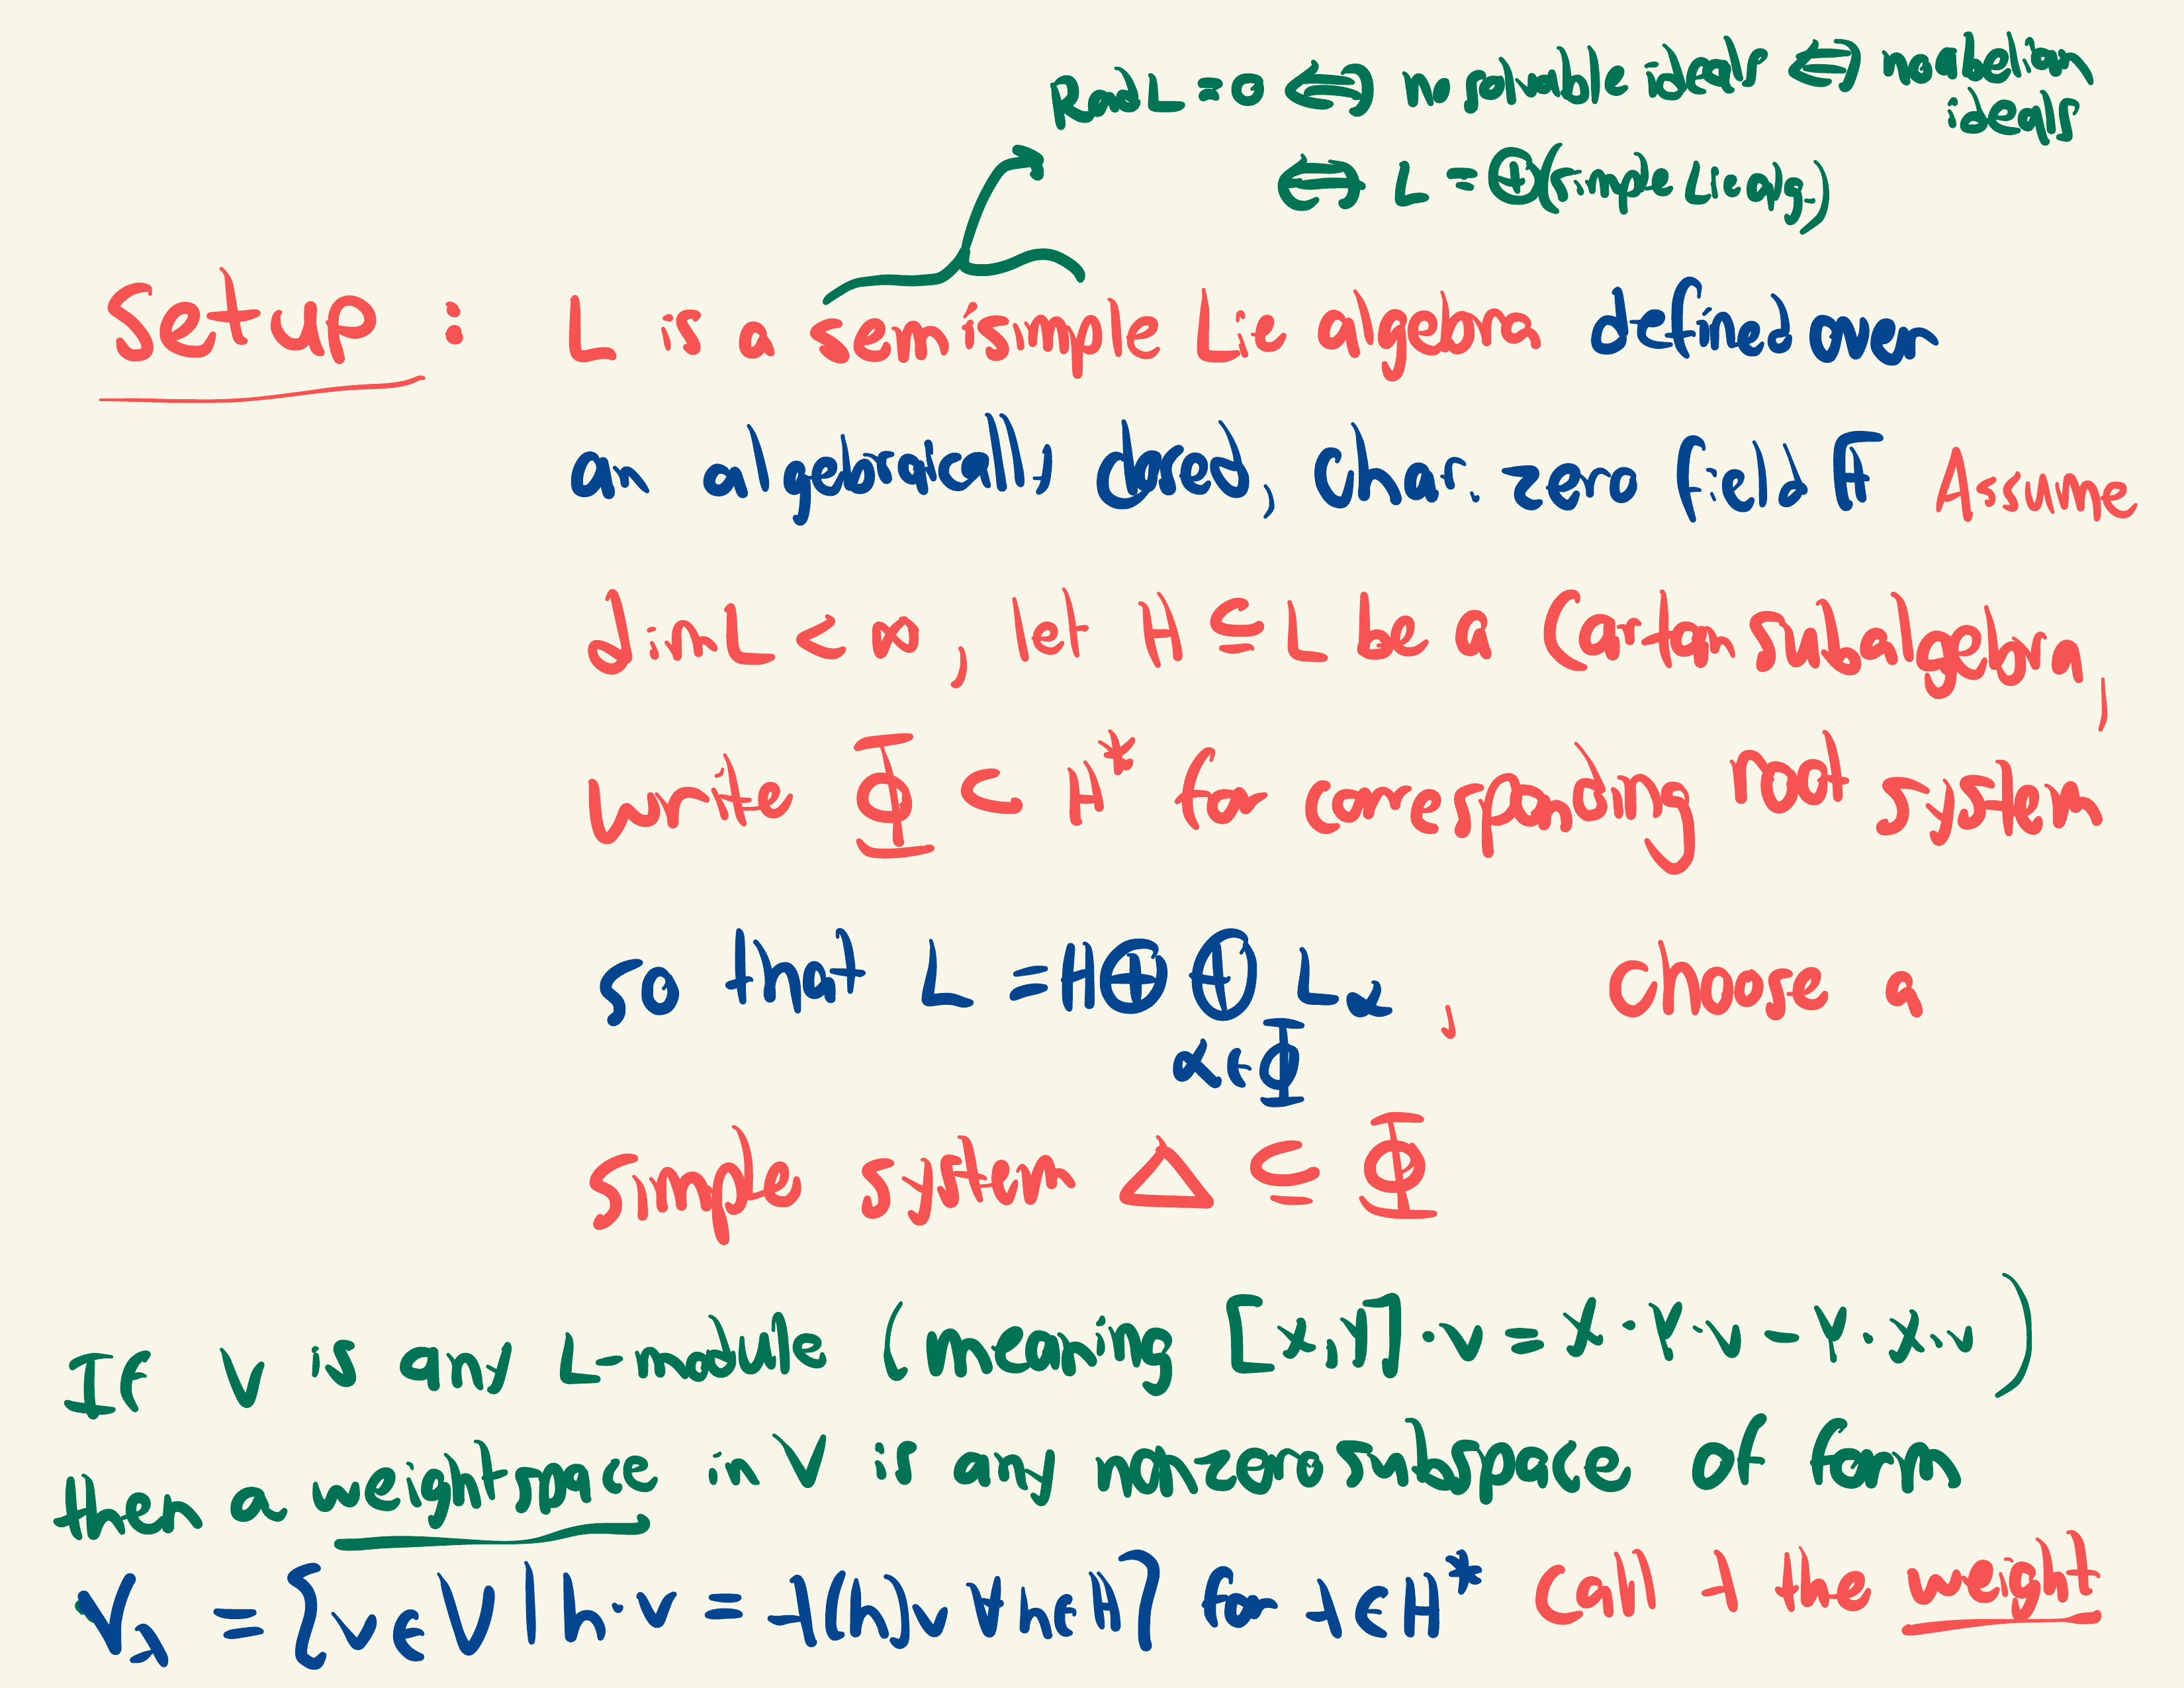 Rad L = 0 ⇔ no solvable ideals ⇔ no abelian ideals
⇔ L = ⊕(simple Lie alg.)
Setup : L is a semisimple Lie algebra defined over
an algebraically closed, char. zero field F Assume
dim L < ∞, let H ⊆ L be a Cartan subalgebra,
write Φ ⊂ H* for corresponding root system
so that L = H ⊕ ⊕ L_α , choose a
α∈Φ
simple system Δ ⊆ Φ
If V is any L-module (meaning [X,Y]·v = X·Y·v - Y·X·v)
then a weight space in V is any nonzero subspace of form
V_λ = {v ∈ V | h·v = λ(h)v ∀h∈H} for λ∈H* Call λ the weight